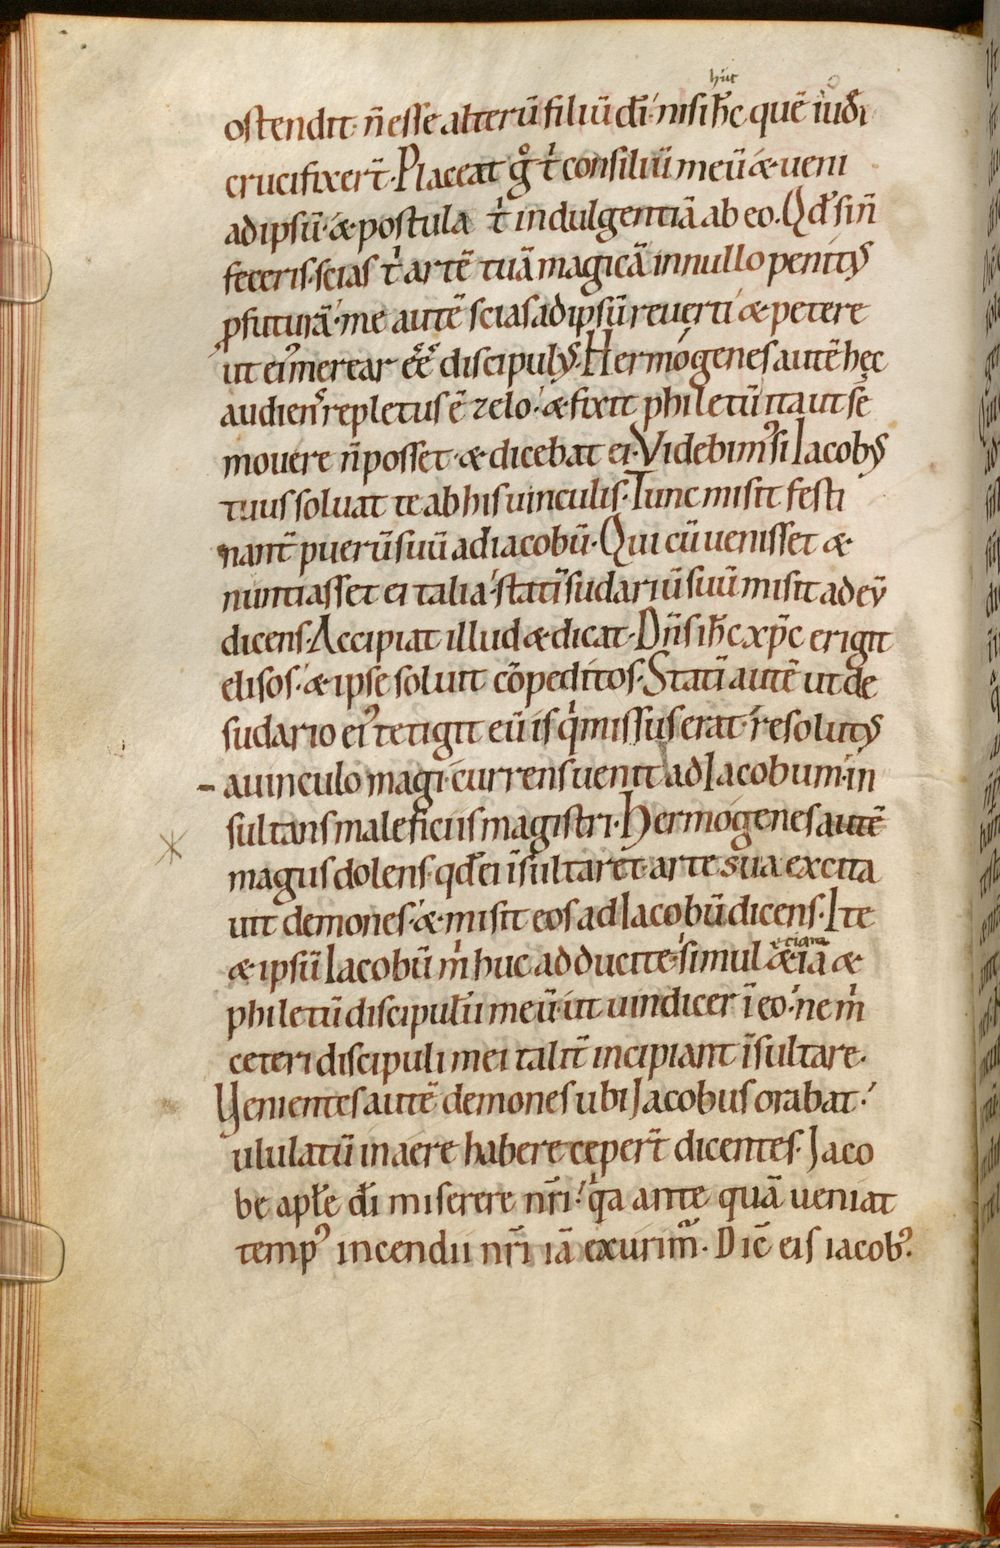 hūc
ostendit· n̄ esse alterū filiū dī· nisi ih̄c quē iudi
crucifixer̄t· Placeat gͦ tͥ consiliū meū· & ueni
ad ipsū· & postula tͥ indulgentiā ab eo. Qd̄ si n̄
feceris· scias tͥ artē tuā magicā in nullo penitꝰ
ꝓfuturā· me autē scias ad ipsū reuerti· & petere
ut eiꝰ merear eēe discipulꝰ. Hermógenes autē hęc
audienˢ repletus ē zelo· & fixit philetū ita ut sē
mouere n̄ posset· & dicebat ei· Videbimꝰ si Iacobꝰ
tuus soluat te ab his uinculis· Tunc misit festi
nant̄ puerū suū ad iacobū· Qui cū uenisset &
nuntiasset ei talia· statī sudariū suū misit ad eū
dicens· Accipiat illud & dicat· Dn̄s ih̄c xp̄c erigit
elisos· & ipse soluit cōpeditos· Statī autē ut de
sudario eiꝰ tetigit eū is qͥ missus erat· resolutꝰ
- a uinculo magi· currens uenit ad Iacobum· in
sultans maleficiis magistri· Hermógenes autē
magus dolens· qd̄ ei īsultaret· arte sua excita
uit demones· & misit eos ad Iacobū dicens· Ite
etiam
& ipsū Iacobū mͥ huc adducite· simul & iā &
philetū discipulū meū· ut uindicer ī eo· ne mͥ
ceteri discipuli mei talit̄ incipiant īsultare·
Uenientes autē demones ubi Jacobus orabat·
ululatū in aere habere ceper̄t dicentes· Jaco
be apl̄e dī miserere nr̄i· qͥa ante quā ueniat
tempꝰ incendii nr̄i iā exurim̄· Dic̄ eis iacobꝰ.